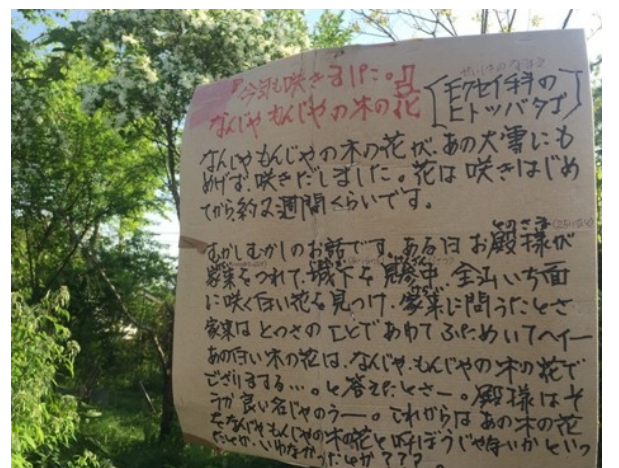 今年も咲きました。
なんじゃもんじゃの木の花
モクセイ科の
ヒトツバタゴ
なんじゃもんじゃの木の花が、あの大雪にも
めげず、咲きだしました。花は咲きはじめ
てから約2週間くらいです。
むかしむかしのお話です。ある日お殿様が
家来をつれて、城下を見
全山いち面
に咲く白い花を見つけ、家来に問うたとさ
家来はとっさのことであわてふためいてヘイー
あの白い木の花は、なんじゃもんじゃの木の花で
ござりまする…。と答えたとさー。殿様はそ
うか良い名じゃのうー。これからはあの木の花
をなんじゃもんじゃの木の花と呼ぼうじゃないかといっ
たとか、いわなかったとか???。